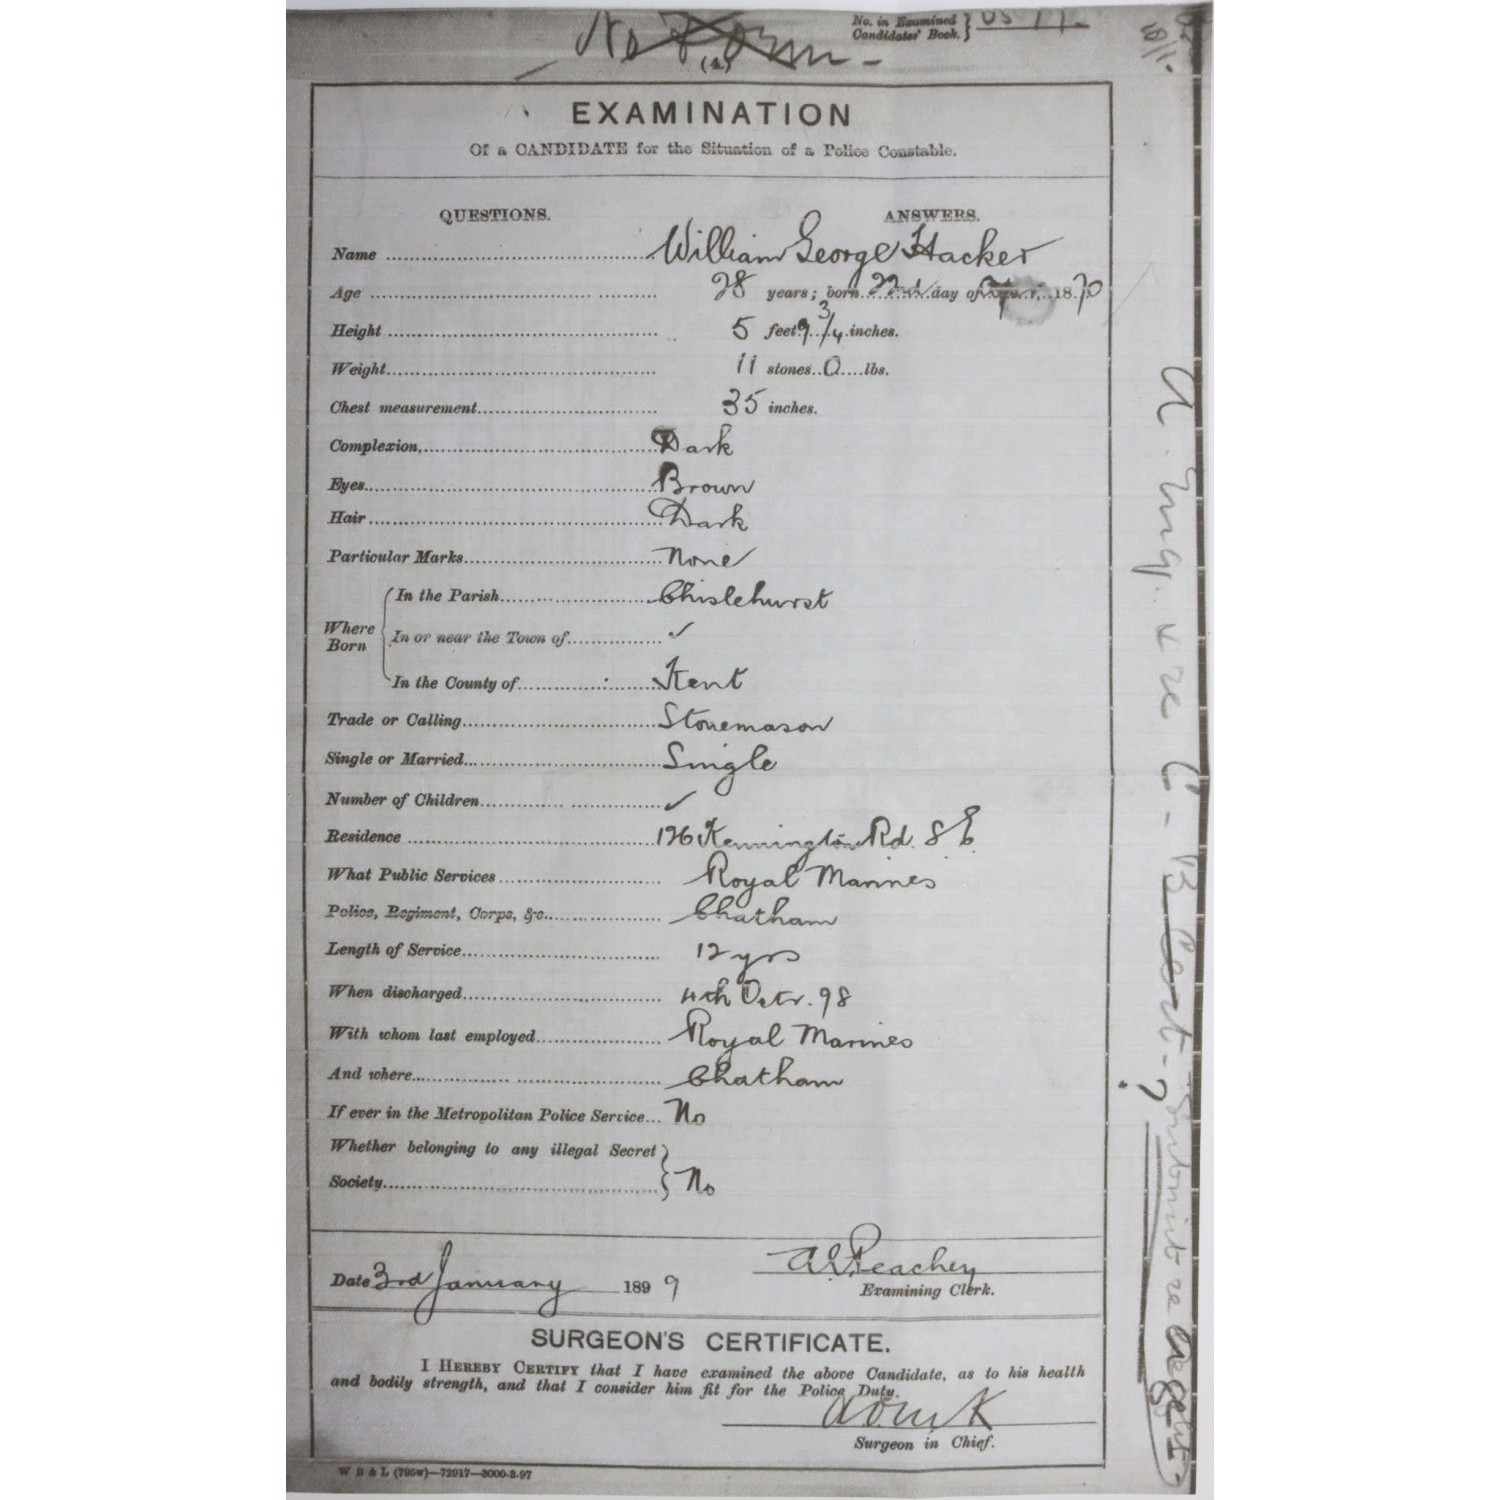 No Form
No. in Examined
Candidates' Book.
(4.)
EXAMINATION
Of a CANDIDATE for the Situation of a Police Constable.
QUESTIONS. ANSWERS.
Name William George Hacker
Age 28 years; born 22nd day of 1870
Height 5 feet 9 3/4 inches.
Weight 11 stones 0 lbs.
Chest measurement 35 inches.
Complexion, Dark
Eyes Brown
Hair Dark
Particular Marks None
Where Born
In the Parish Chislehurst
In or near the Town of ✓
In the County of Kent
Trade or Calling Stonemason
Single or Married Single
Number of Children ✓
Residence 126 Kennington Rd. S E
What Public Services Royal Marines
Police, Regiment, Corps, &c. Chatham
Length of Service 12 yrs
When discharged 4th Octr. 98
With whom last employed Royal Marines
And where Chatham
If ever in the Metropolitan Police Service... No
Whether belonging to any illegal Secret
Society No
Date 3rd January 1899
Peachey
Examining Clerk.
SURGEON'S CERTIFICATE.
I HEREBY CERTIFY that I have examined the above Candidate, as to his health
and bodily strength, and that I consider him fit for the Police Duty.
Surgeon in Chief.
W B & L (795w)—72917—3000-3-97